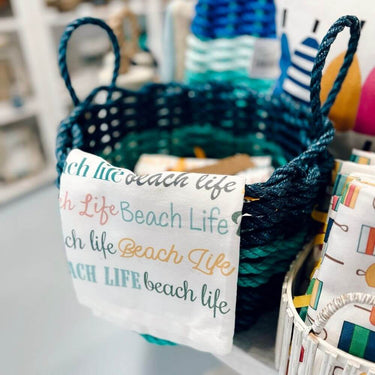 Beach life beach life
ch Life Beach Life
ach life Beach Life
BEACH LIFE beach life